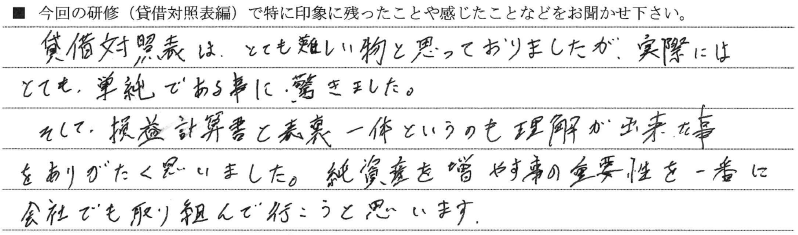 ■ 今回の研修（貸借対照表編）で特に印象に残ったことや感じたことなどをお聞かせ下さい。
貸借対照表は、とても難しい物と思っておりましたが、実際には
とても、単純である事に、驚きました。
そして、損益計算書と表裏一体というのも理解が出来た事
をありがたく思いました。純資産を増やす事の重要性を一番に
会社でも取り組んで行こうと思います。